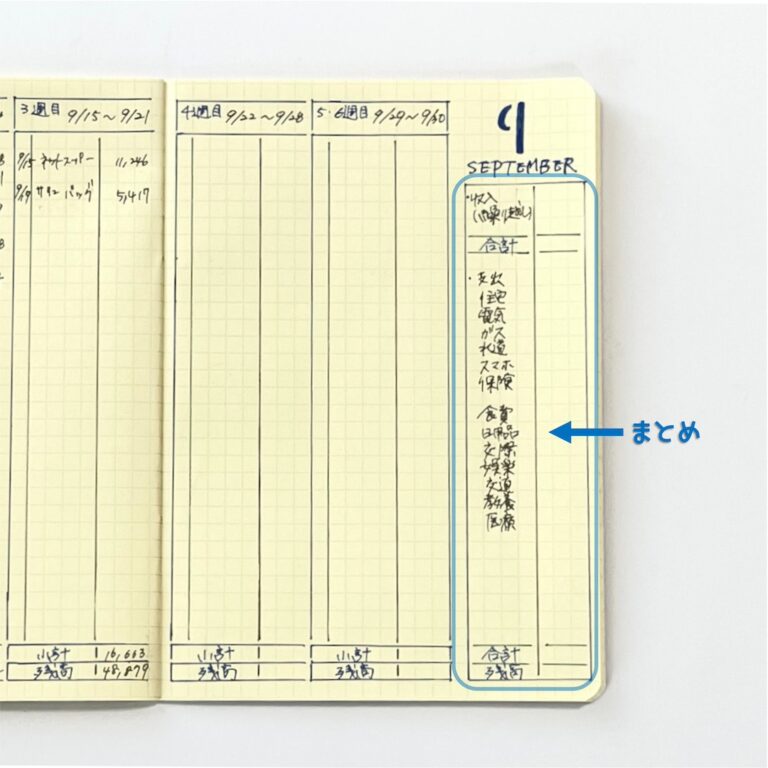 3週目 9/15~9/21
9/15 ネットスーパー 11,246
9/19 サキュ バッグ 5,417
小計 16,663
残高 48,879
4週目 9/22~9/28
小計
残高
5・6週目 9/29~9/30
小計
残高
9
SEPTEMBER
・収入
(内繰り越し)
合計
・支出
住宅
電気
ガス
水道
スマホ
保険
食費
日用品
交際
娯楽
交通
教養
医療
合計
残高
まとめ